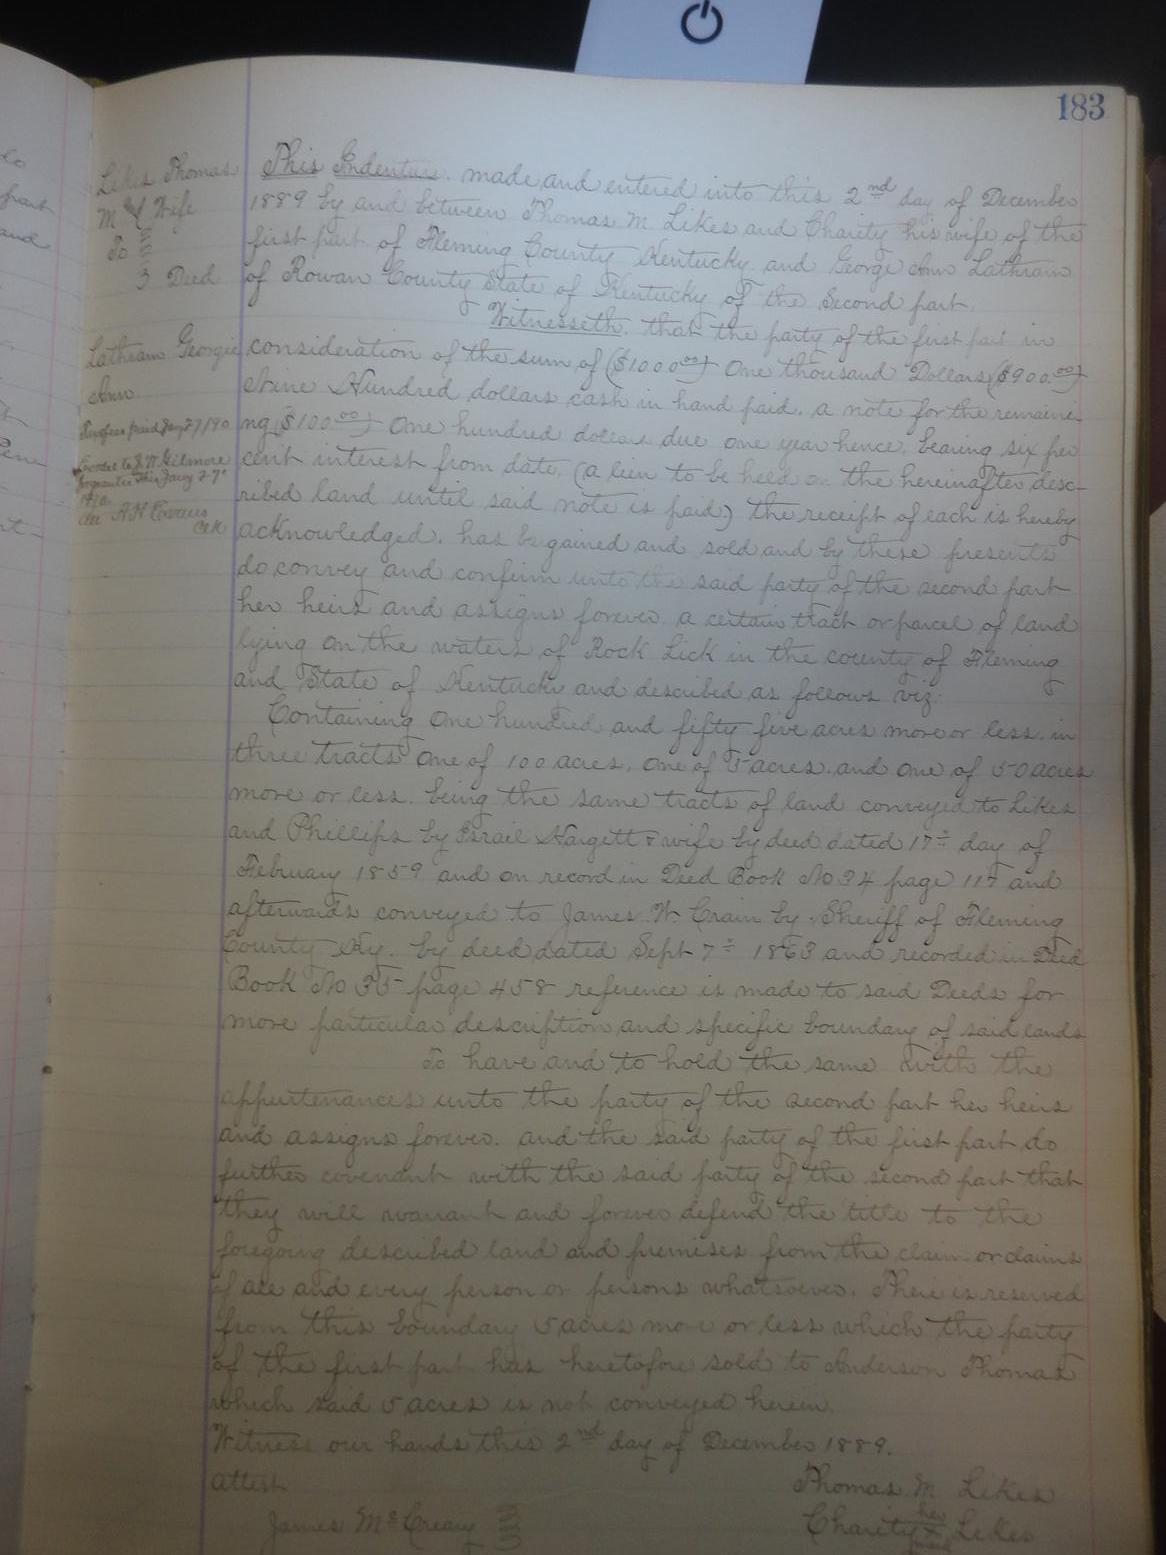 183
Likes Thomas
M & Wife
To
3 Deed
Lathram Georgie
Ann
Tax fees paid Jany 27/90
to J. W. Gilmore
Jany 27
A. H. Evans
Clk
This Indenture. made and entered into this 2nd day of December
1889 by and between Thomas M. Likes and Charity his wife of the
first part of Fleming County Kentucky and George Ann Lathram
of Rowan County State of Kentucky of the Second part.
Witnesseth. that the party of the first part in
consideration of the sum of ($1000.00) One thousand Dollars ($900.00)
Nine Hundred dollars cash in hand paid. a note for the remaini-
ng ($100.00) One hundred dollars due one year hence, bearing six per
cent interest from date. (a lien to be held on the hereinafter desc-
ribed land until said note is paid) the receipt of each is hereby
acknowledged. has bargained and sold and by these presents
do convey and confirm unto the said party of the second part
her heirs and assigns forever a certain tract or parcel of land
lying on the waters of Rock Lick in the county of Fleming
and State of Kentucky and described as follows viz:
Containing One hundred and fifty five acres more or less. in
three tracts one of 100 acres. one of 5 acres. and one of 50 acres
more or less. being the same tracts of land conveyed to Likes
and Phillips by Israil Hargett & wife by deed dated 17th day of
February 1859 and on record in Deed Book No 34 page 117 and
afterwards conveyed to James W Crain by Sheriff of Fleming
County Ky. by deed dated Sept 7th 1863 and recorded in Deed
Book No 35 page 458 reference is made to said Deeds for
more particular description and specific boundary of said lands
To have and to hold the same with the
appurtenances unto the party of the second part her heirs
and assigns forever. and the said party of the first part do
further covenant with the said party of the second part that
they will warrant and forever defend the title to the
foregoing described land and premises from the claim or claims
of all and every person or persons whatsoever. There is reserved
from this boundary 5 acres more or less which the party
of the first part has heretofore sold to Anderson Thomas
which said 5 acres is not conveyed herein.
Witness our hands this 2nd day of December 1889.
attest
Thomas M Likes
James McCreary
her
Charity x Likes
mark